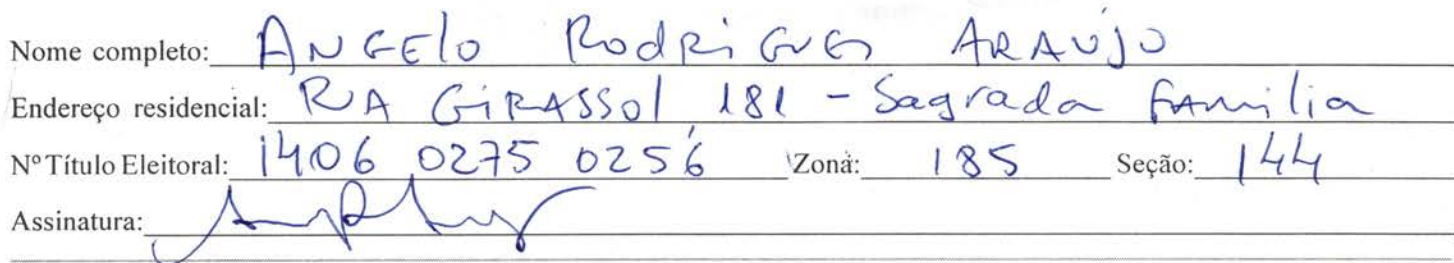 Nome completo: ANGElO RodRiGUES ARAÚJO
Endereço residencial: RUA GiRASSOl 181 - Sagrada FAmilia
Nº Título Eleitoral: 1406 0275 0256 Zona: 185 Seção: 144
Assinatura: